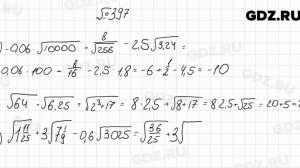 GDZ.RU
№397
) -0,06·√10000 + 8/√256 - 2,5√3,24 =
0,06·100 + 8/16 - 2,5·1,8 = -6 + 1/2 - 4,5 = -10
√64 · √6,25 + √2³+17 = 8·2,5 + √8+17 = 8·2,5 + √25 = 20+5=2
) √1 11/25 + 3√7 1/9 - 0,6√3025 = √36/25 + 3√
GDZ.RU